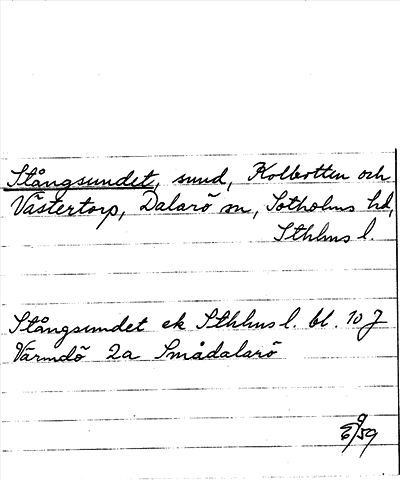 Stångsundet, sund, Kolbotten och
Västertorp, Dalarö sn, Sotholms hd,
Sthlms l.
Stångsundet ek Sthlms l. bl. 10 J
Värmdö 2a Smådalarö
9/59